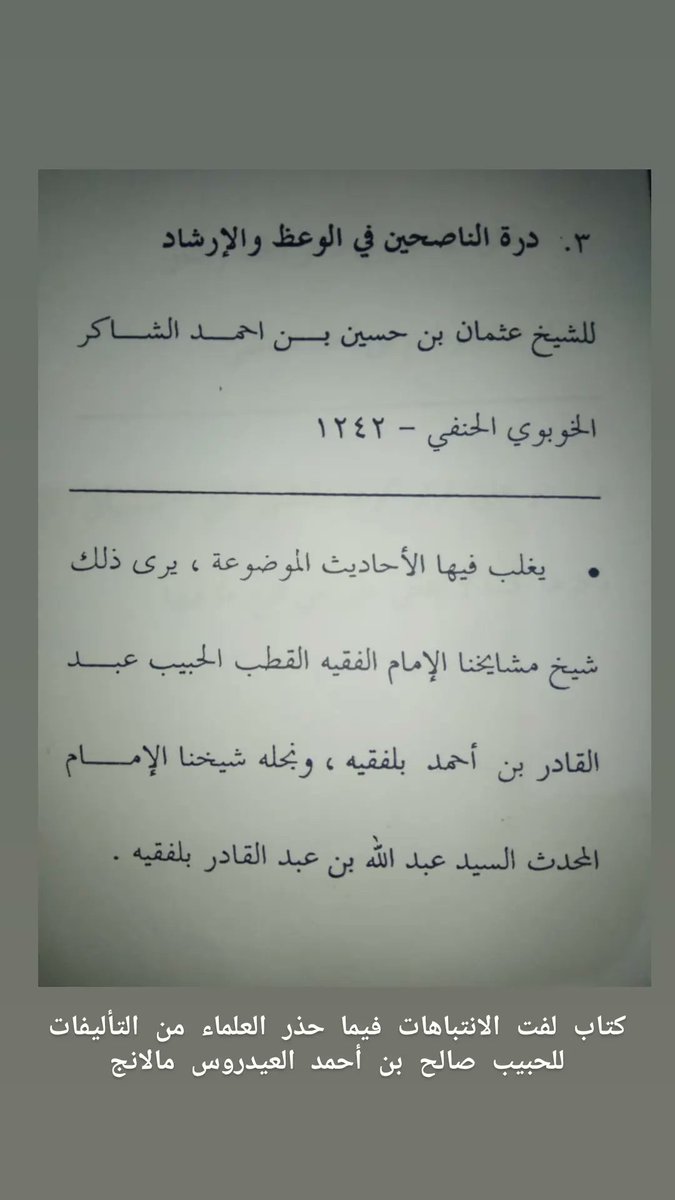 ٣. درة الناصحين في الوعظ والإرشاد
للشيخ عثمان بن حسين بـــن احمـــد الشـــاكر
الخوبوي الحنفي – ١٢٤٢
• يغلب فيها الأحاديث الموضوعة ، يرى ذلك
شيخ مشايخنا الإمام الفقيه القطب الحبيب عبـــد
القادر بن أحمد بلفقيه ، ونجله شيخنا الإمـــام
المحدث السيد عبد الله بن عبد القادر بلفقيه .
كتاب لفت الانتباهات فيما حذر العلماء من التأليفات
للحبيب صالح بن أحمد العيدروس مالانج